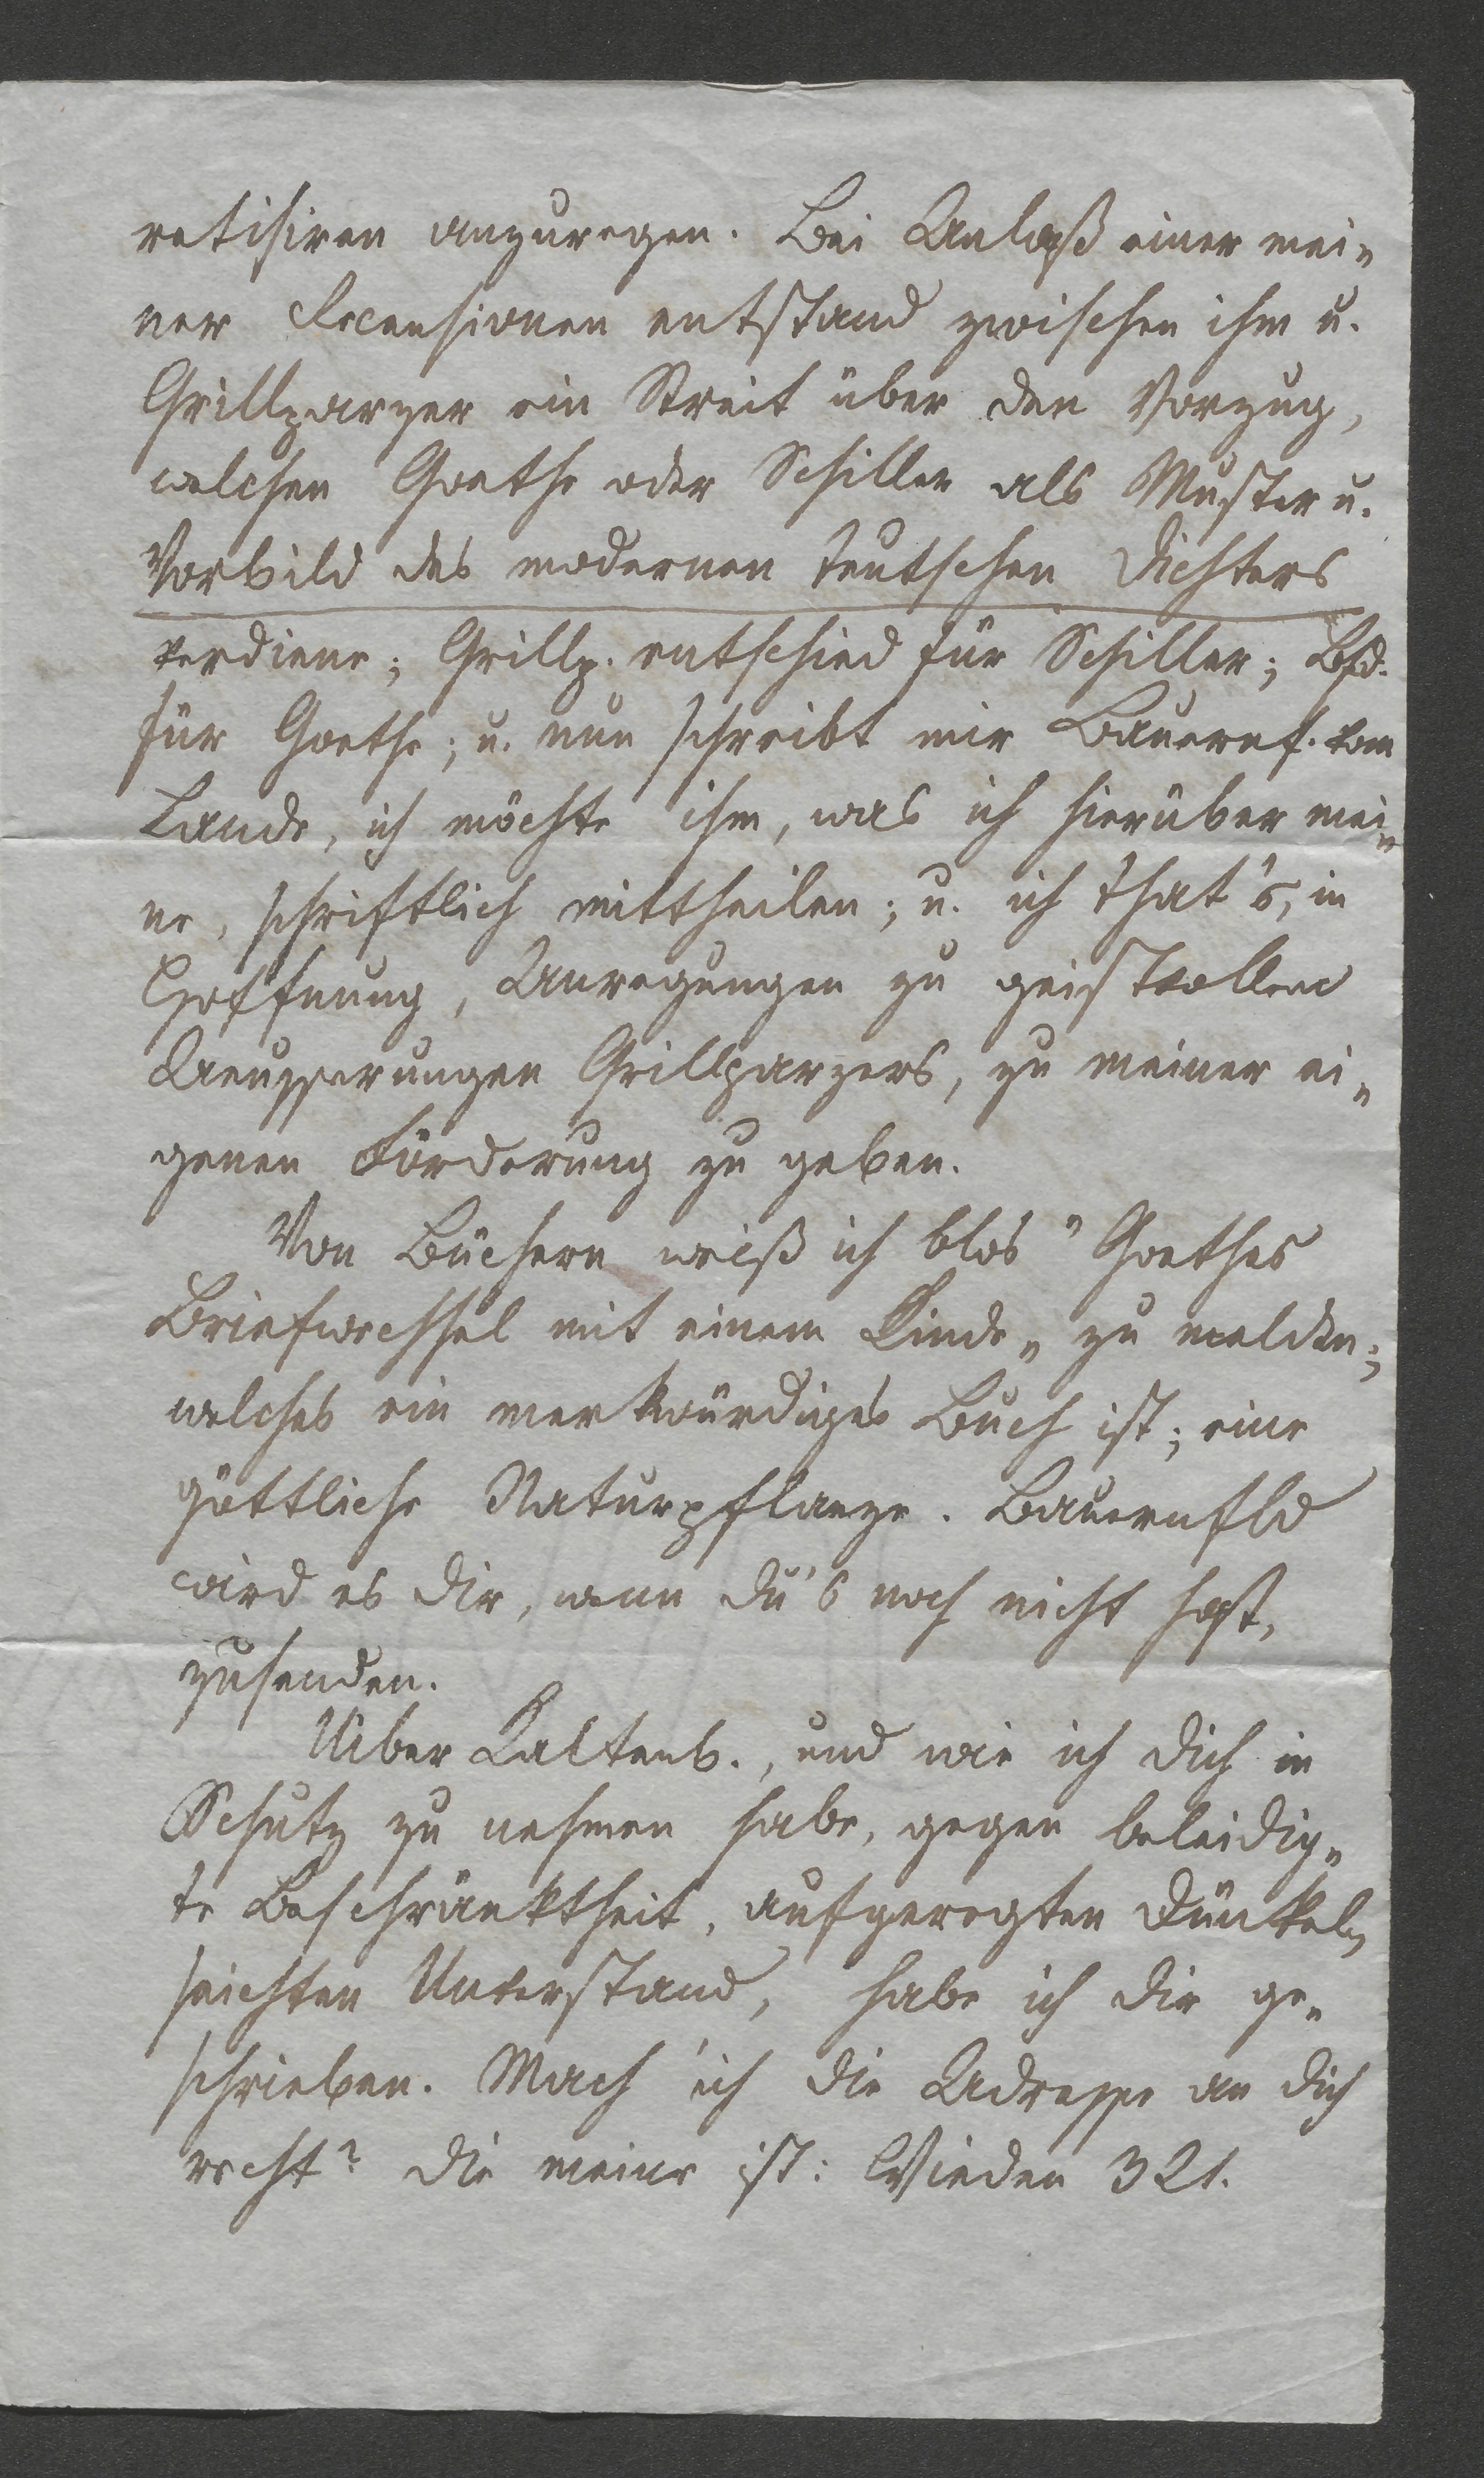 retisiren anzuregen. Bei Anlaß einer mei-
ner Recensionen entstand zwischen ihm u.
Grillparzer ein Streit über den Vorzug,
welchen Goethe oder Schiller als Muster u.
Vorbild des modernen teutschen Dichters
verdiene; Grillp. entschied für Schiller; Bfd.
für Goethe; u. nun schreibt mir Bauernf. vom
Lande, ich möchte ihm, was ich hierüber mei-
ne, schriftlich mittheilen; u. ich that's, in
Hoffnung, Anregungen zu geistvollen
Aeusserungen Grillparzers, zu meiner ei-
genen Förderung zu geben.
Von Büchern weiß ich blos "Goethes
Briefwechsel mit einem Kinde" zu melden;
welches ein merkwürdiges Buch ist; eine
göttliche Naturpflanze. Bauernfld
wird es dir, wenn du's noch nicht hast,
zusenden.
Uiber Kaltenb., und wie ich dich in
Schutz zu nehmen habe, gegen beleidig-
te Beschränktheit, aufgeregten Dünkel,
seichten Unverstand, habe ich dir ge-
schrieben. Mach' ich die Adresse an dich
recht? die meine ist: Wieden 321.